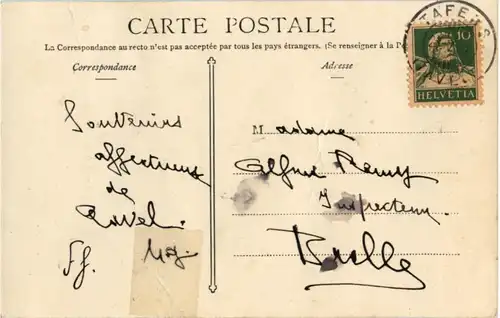 CARTE POSTALE
La Correspondance au recto n'est pas acceptée par tous les pays étrangers. (Se renseigner à la
Correspondance
Adresse
TAFERS
10
HELVETIA
Souvenirs
affectueux
de
Madame
Alfred Remy
Inspecteur
Bulle